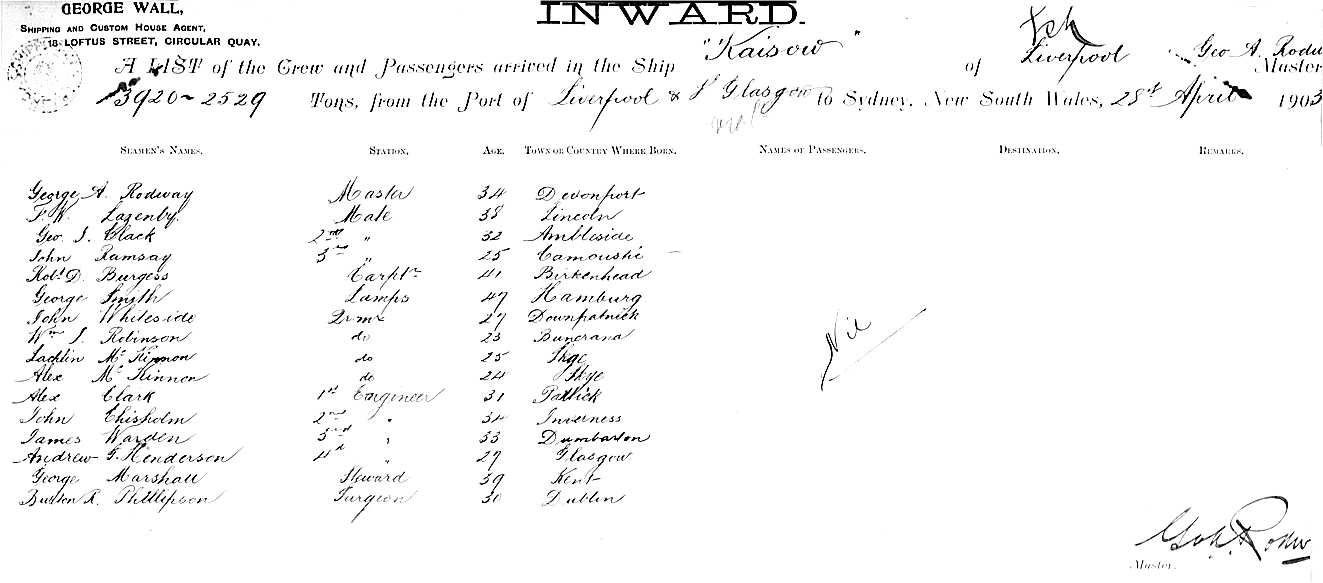 GEORGE WALL,
SHIPPING AND CUSTOM HOUSE AGENT,
18 LOFTUS STREET, CIRCULAR QUAY.
INWARD.
A LIST of the Crew and Passengers arrived in the Ship "Kaisow" of Liverpool Geo A. Rodw Master
3920-2529 Tons, from the Port of Liverpool & Glasgow to Sydney, New South Wales, 28th April 1903
SEAMEN'S NAMES. STATION. AGE. TOWN OR COUNTRY WHERE BORN. NAMES OF PASSENGERS. DESTINATION. REMARKS.
George A. Rodway Master 34 Devonport
F. K. Lazenby. Mate 38 Lincoln
Geo. J. Clack 2nd " 32 Ambleside
John Ramsay 3rd " 25
Robt D. Burgess Carptr 41 Birkenhead
George Smith Lamps 47 Hamburg
John Whiteside Qrmr 27 Downpatrick
Wm J. Robinson do 23 Buncrana
Lachlin Mc Kinnon do 25 Skye
Alex Mc Kinnon do 24 Skye
Alex Clark 1st Engineer 31 Partick
John Chisholm 2nd " 34 Inverness
James Warden 3rd " 33 Dumbarton
Andrew G. Henderson 4th " 27 Glasgow
George Marshall Steward 39 Kent
Burton R. Phillipson Surgeon 30 Dublin
Nil
Geo A. Rodw
Master.